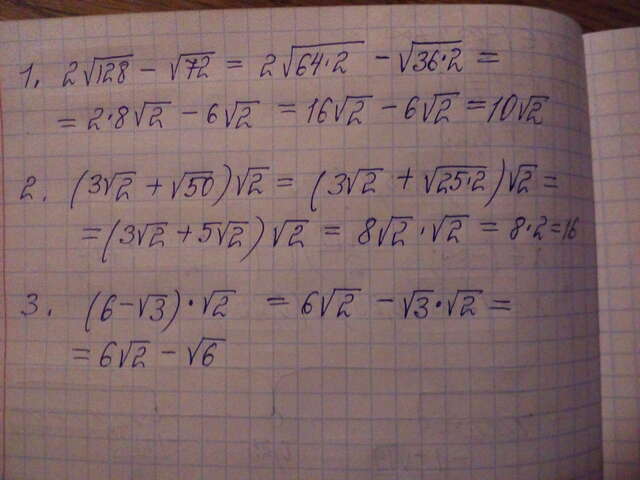 1. 2√128 - √72 = 2√64·2 - √36·2 =
= 2·8√2 - 6√2 = 16√2 - 6√2 = 10√2
2. (3√2 + √50)√2 = (3√2 + √25·2)√2 =
= (3√2 + 5√2)√2 = 8√2·√2 = 8·2=16
3. (6-√3)·√2 = 6√2 - √3·√2 =
= 6√2 - √6